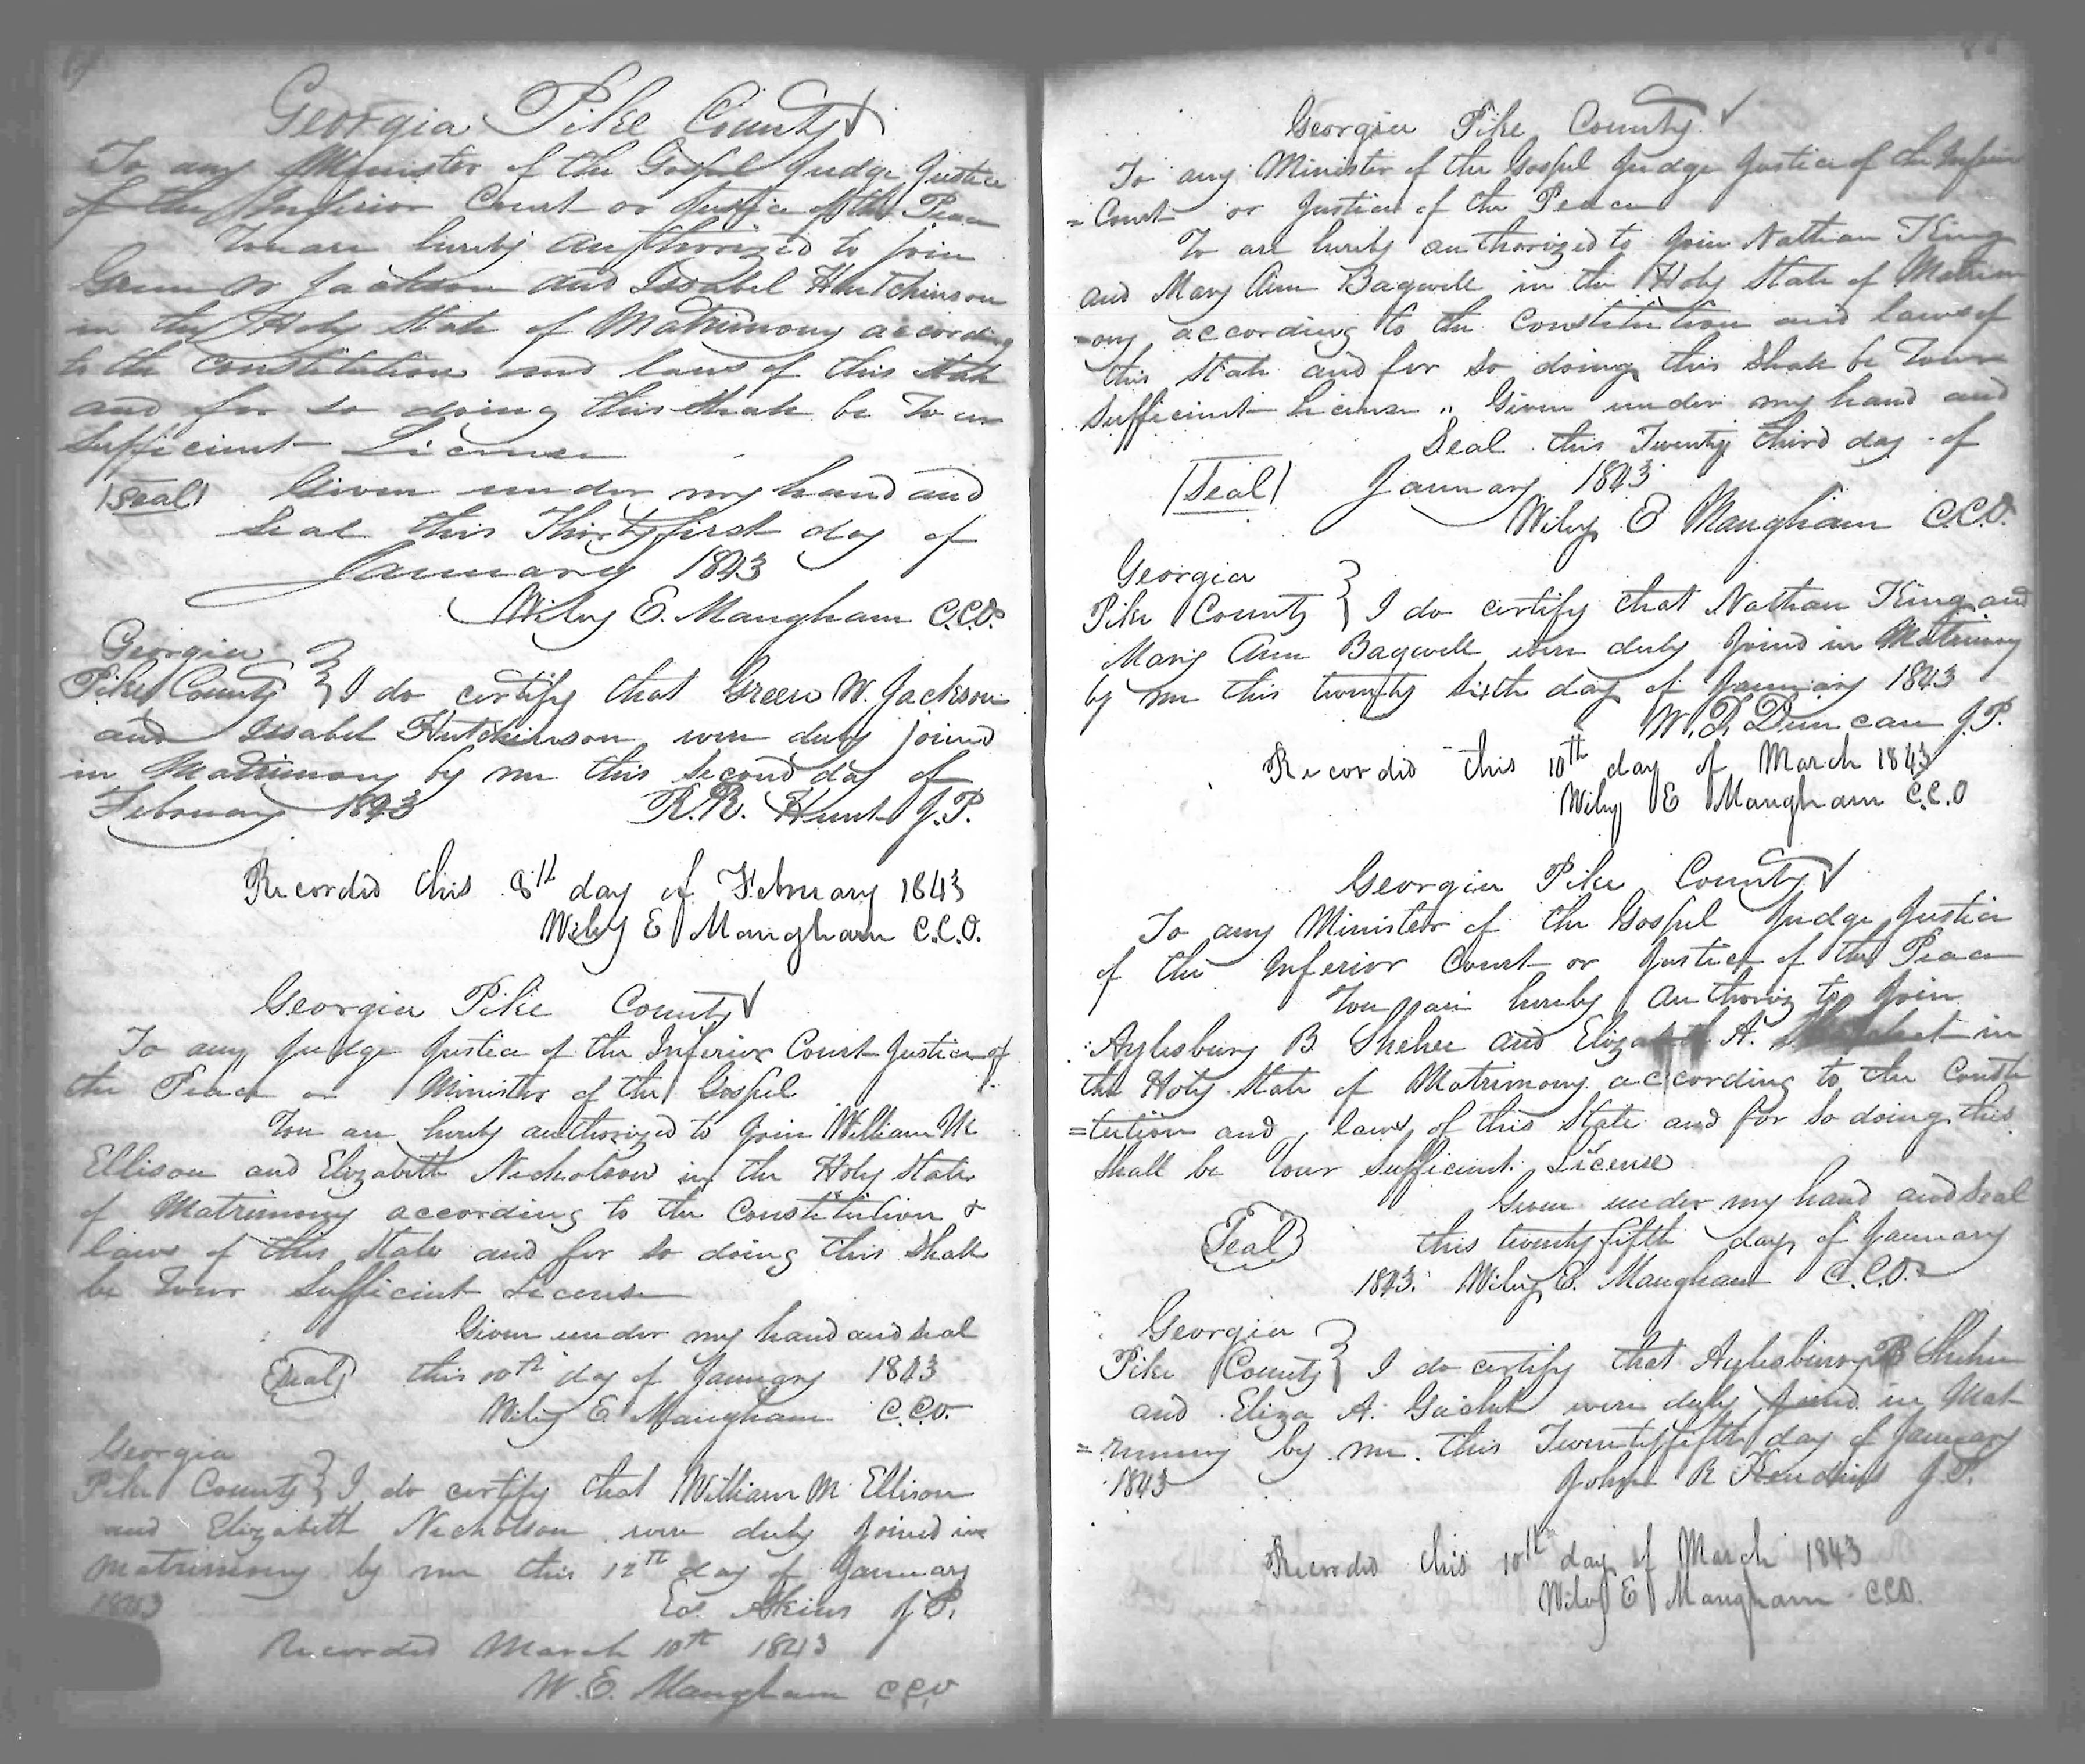 Georgia Pike County
To any Minister of the Gospel Judge Justice
of the Inferior Court or Justice of the Peace
You are hereby authorized to join
Green W Jackson and Issabel Hutchinson
in the Holy State of Matrimony according
to the Constitution and laws of this State
and for so doing this shall be Your
Sufficient License
(Seal) Given under my hand and
Seal this Thirty first day of
January 1843
Wiley E. Mangham C.C.O.
Georgia
Pike County } I do certify that Green W. Jackson
and Issabel Hutchinson were duly joined
in Matrimony by me this second day of
February 1843 R.R. Hunt J.P.
Recorded this 8th day of February 1843
Wiley E Mangham C.C.O.
Georgia Pike County
To any Judge Justice of the Inferior Court Justice of
the Peace or Minister of the Gospel
You are hereby authorized to join William M
Ellison and Elizabeth Nicholson in the Holy State
of Matrimony according to the Constitution &
laws of this State and for so doing this Shall
be Your Sufficient License
Given under my hand and seal
(Seal) this 10th day of January 1843
Wiley E Mangham C.C.O.
Georgia
Pike County } I do certify that William M Ellison
and Elizabeth Nicholson were duly joined in
Matrimony by me this 12th day of January
1843 Akins J.P.
Recorded March 10th 1843
W. E. Mangham C.C.O
Georgia Pike County
To any Minister of the Gospel Judge Justice of the Inferior
= Court or Justice of the Peace
To are hereby authorized to join Nathan King
and Mary Ann Bagwell in the Holy State of Matrim
=ony according to the Constitution and laws of
this State and for so doing this Shall be Your
Sufficient License " Given under my hand and
Seal this Twenty third day of
(Seal) January 1843
Wiley E Mangham C.C.O.
Georgia
Pike County } I do certify that Nathan King and
Mary Ann Bagwell were duly joined in Matrimony
by me this twenty sixth day of January 1843
W. D. Duncan J.P.
Recorded this 10th day of March 1843
Wiley E Mangham C.C.O
Georgia Pike County
To any Minister of the Gospel Judge Justice
of the Inferior Court or Justice of the Peace
You are hereby Authoriz to join
Aylesbury B. Sheher and Elizabeth A. in
the Holy State of Matrimony according to the Consti
=tution and laws of this State and for so doing this
Shall be Your Sufficient License
Given under my hand and Seal
(Seal) this twenty fifth day of January
1843. Wiley E. Mangham C.C.O.
Georgia
Pike County } I do certify that Aylesbury B Sheher
and Eliza A. Gachet were duly joined in Mat
=rimony by me this Twenty fifth day of January
1843 John R Hendrix J.P.
Recorded this 10th day of March 1843
Wiley E Mangham C.C.O.